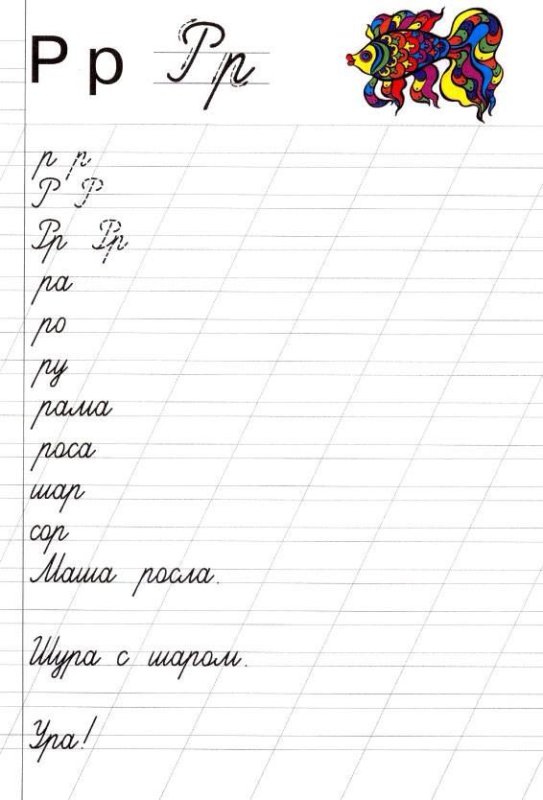 Р р Р р
р р
Р Р
Рр Рр
ра
ро
ру
рама
роса
шар
сор
Маша росла.
Шура с шаром.
Ура!